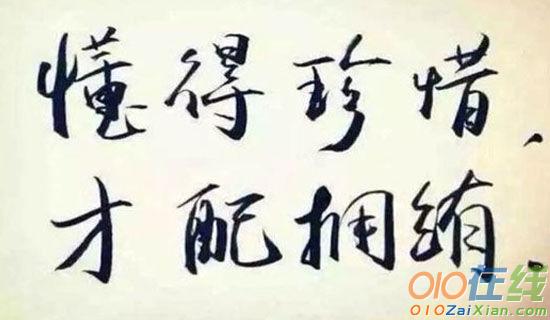 懂得珍惜,
才配拥有.
010在线
010ZaiXian.com